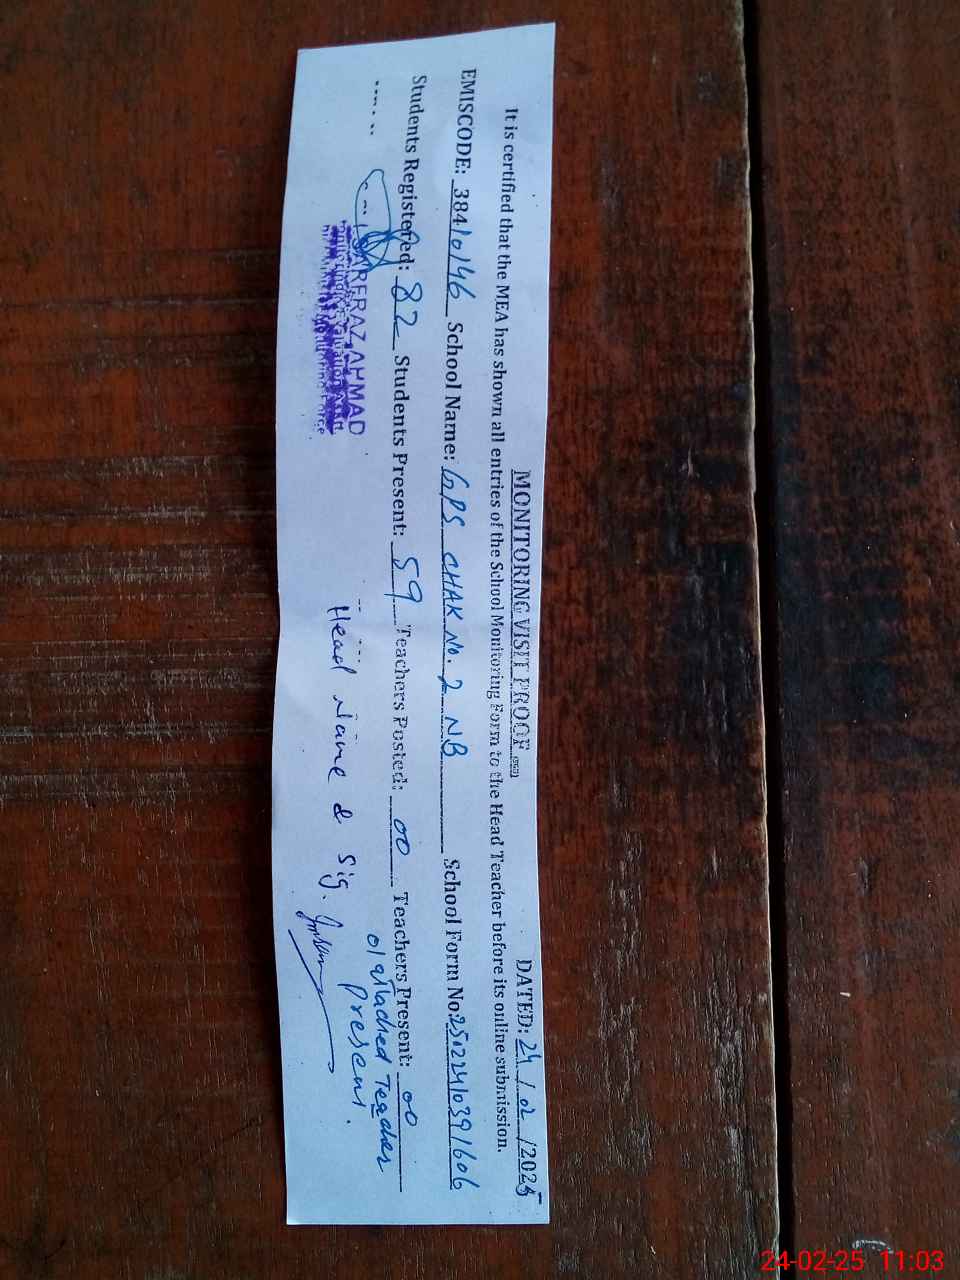 MONITORING VISIT PROOF
DATED: 24/02/2025
It is certified that the MEA has shown all entries of the School Monitoring Form to the Head Teacher before its online submission.
EMISCODE: 38410146 School Name: GPS CHAK No. 2 NB School Form No:
Students Registered: 82 Students Present: 59 Teachers Posted: 00 Teachers Present: 00
01 attached Teacher
present.
SARFRAZ AHMAD
Head Name & Sig.
24-02-25 11:03